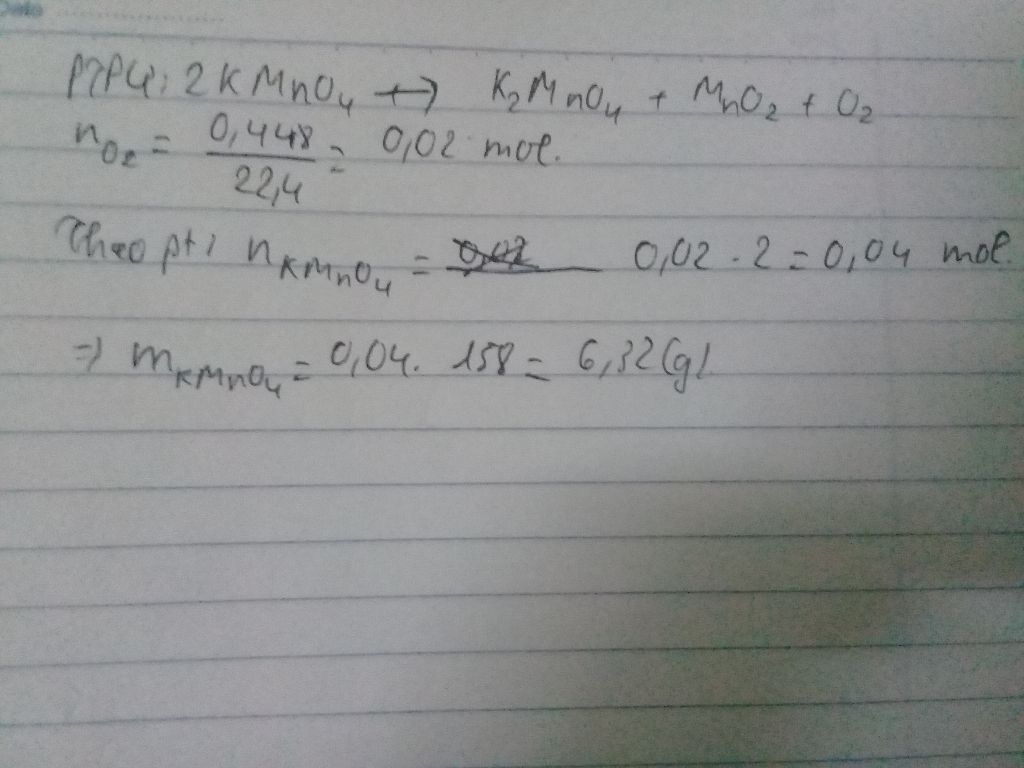 Date
PTPƯ: 2KMnO₄ → K₂MnO₄ + MnO₂ + O₂
n_O₂ = 0,448/22,4 = 0,02 mol.
Theo pt: n_KMnO₄ = 0,02 . 2 = 0,04 mol.
=> m_KMnO₄ = 0,04. 158 = 6,32 (g)